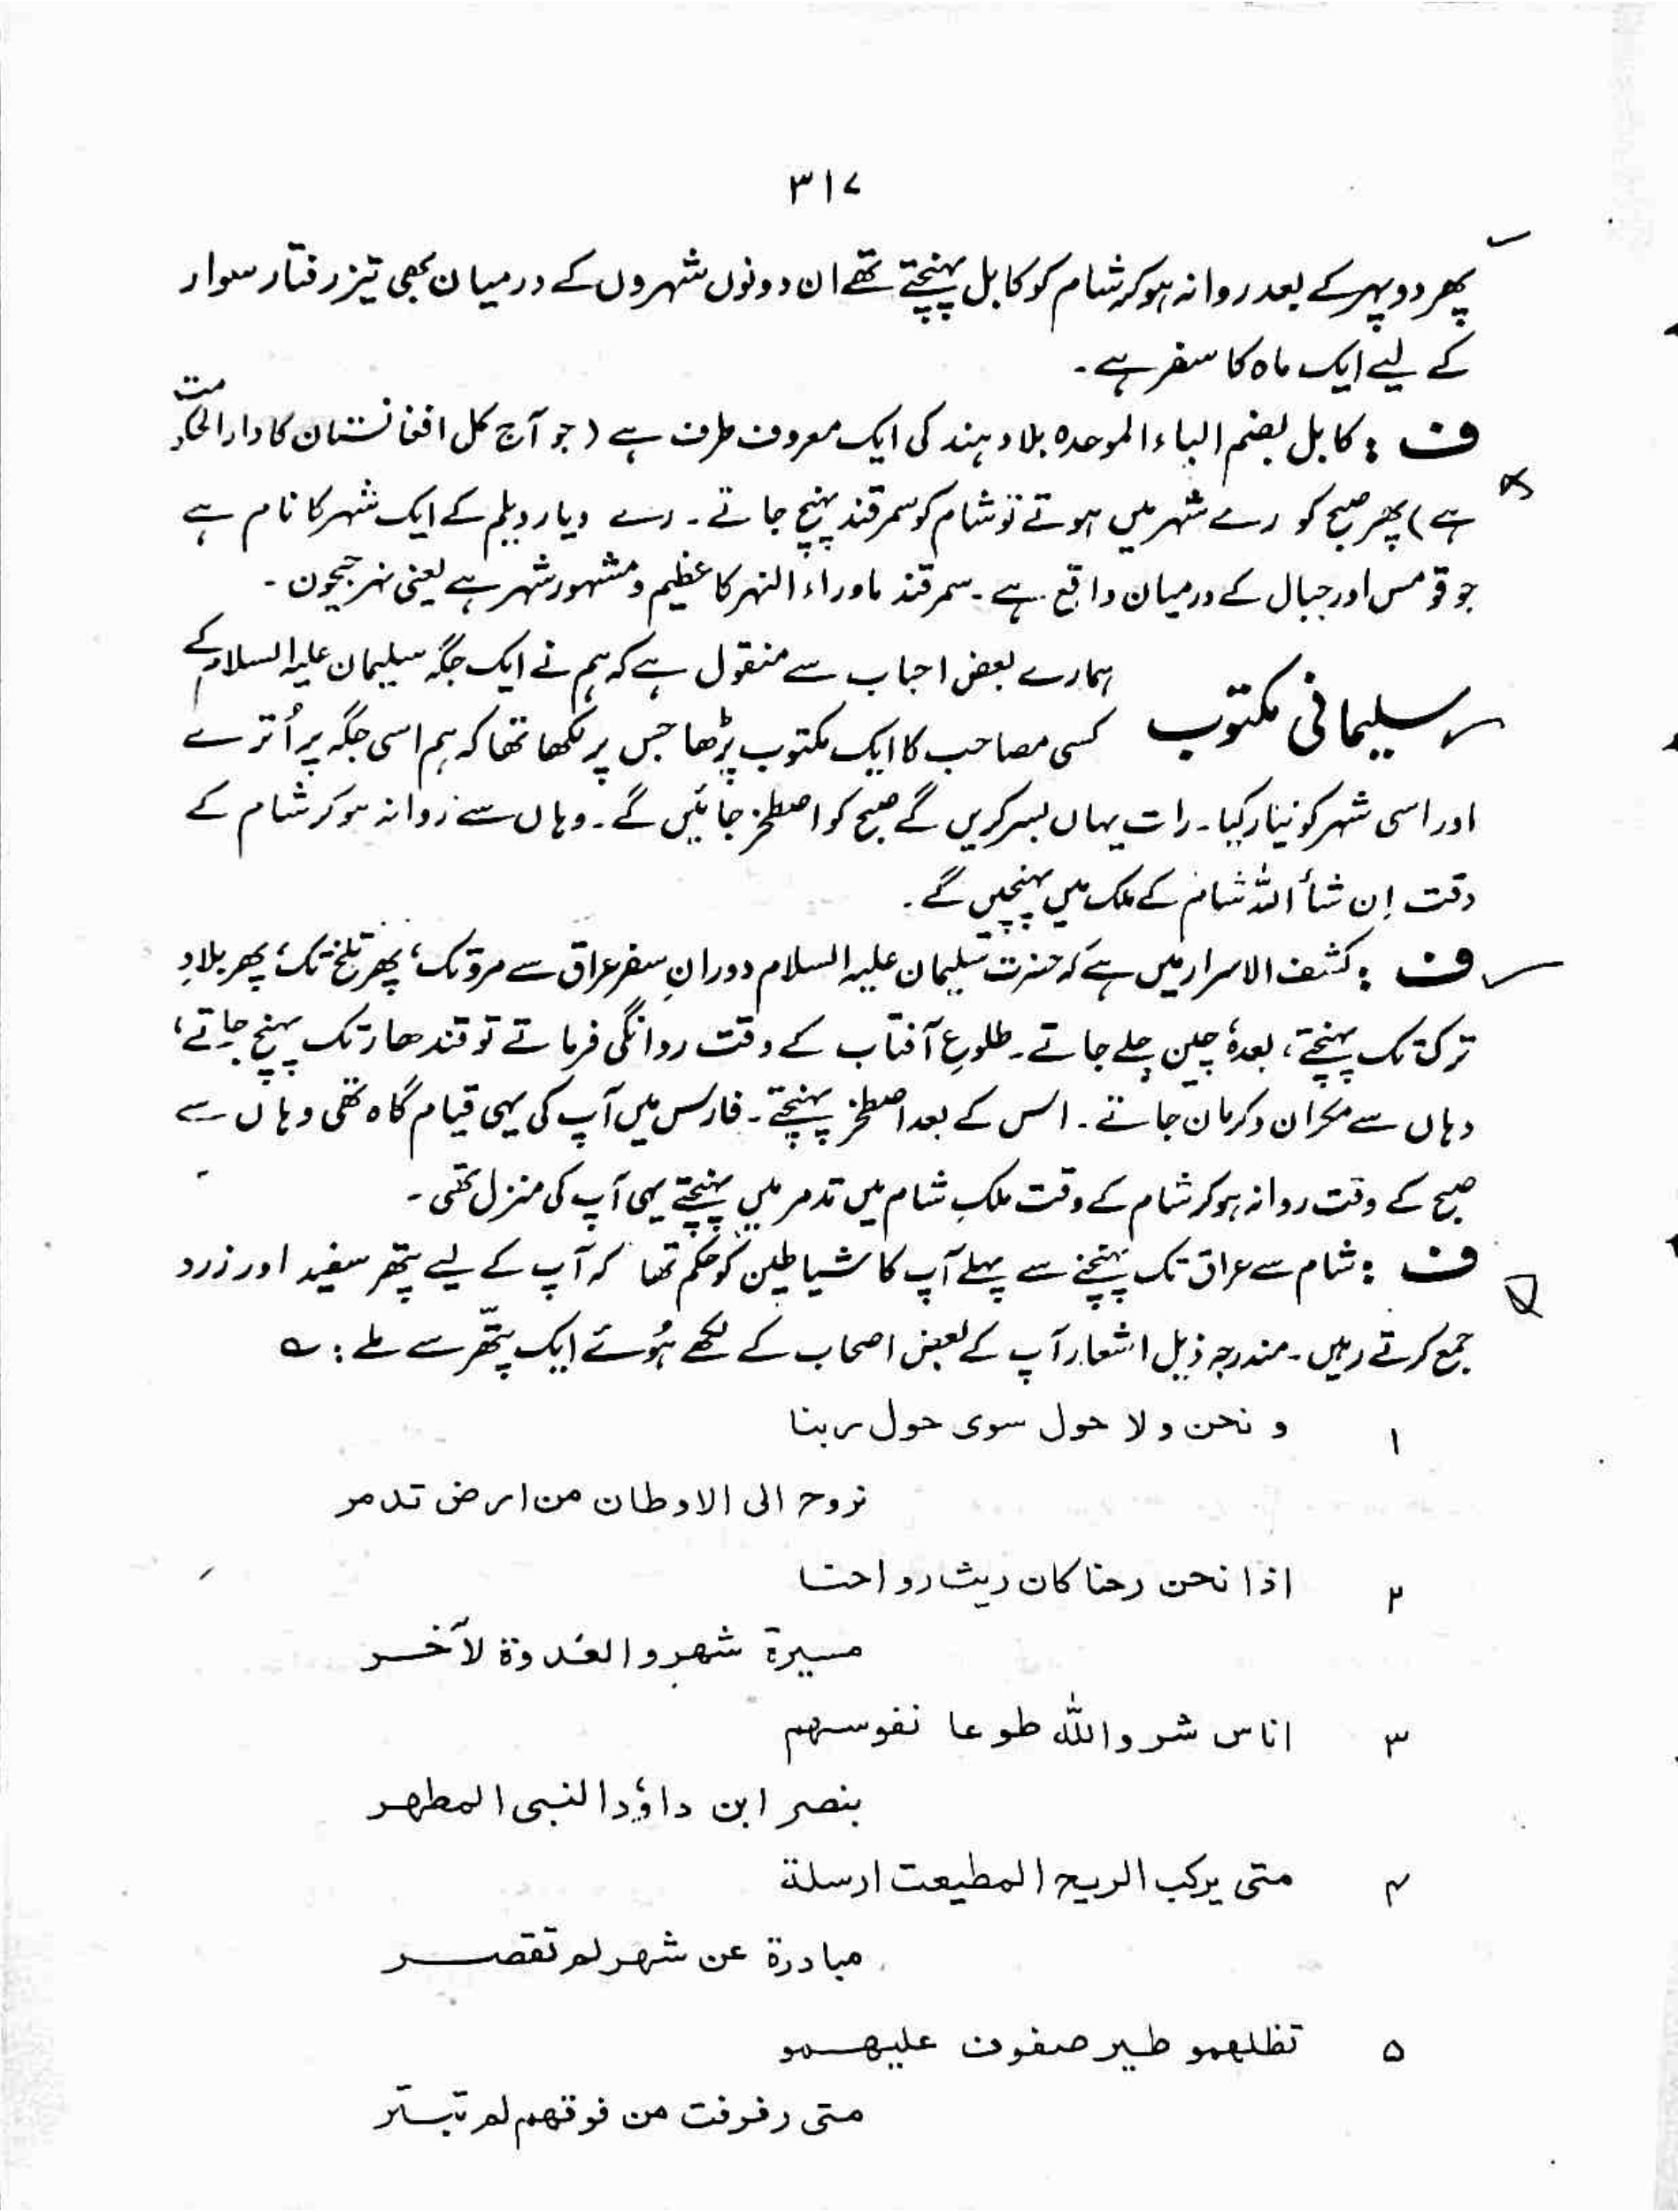 ۳۱۷
پھر دوپہر کے بعد روانہ ہو کر شام کو کابل پہنچتے تھے ان دونوں شہروں کے درمیان بھی تیز رفتار سوار
کے لیے ایک ماہ کا سفر ہے ۔
ف : کابل بضم الباء الموحدہ بلاد ہند کی ایک معروف طرف ہے ( جو آج کل افغانستان کا دار الحکومت
ہے ) پھر صبح کو رے شہر میں ہوتے تو شام کو سمرقند پہنچ جاتے ۔ رے دیار دیلم کے ایک شہر کا نام ہے
جو قومس اور جبال کے درمیان واقع ہے ۔ سمرقند ماوراء النہر کا عظیم و مشہور شہر ہے یعنی نہر جیحون ۔
سلیمانی مکتوب
ہمارے بعض احباب سے منقول ہے کہ ہم نے ایک جگہ سلیمان علیہ السلام کے
کسی مصاحب کا ایک مکتوب پڑھا جس پر لکھا تھا کہ ہم اسی جگہ پر اُترے
اور اسی شہر کو تیار کیا ۔ رات یہاں بسر کریں گے صبح کو اصطخر جائیں گے ۔ وہاں سے روانہ ہو کر شام کے
وقت اِن شأ اللہ شام کے ملک میں پہنچیں گے ۔
ف : کشف الاسرار میں ہے کہ حضرت سلیمان علیہ السلام دورانِ سفر عراق سے مرو تک ، پھر بلخ تک ، پھر بلادِ
ترک تک پہنچتے ، بعدہٗ چین چلے جاتے ۔ طلوعِ آفتاب کے وقت روانگی فرماتے تو قندھار تک پہنچ جاتے ،
وہاں سے مکران و کرمان جاتے ۔ اس کے بعد اصطخر پہنچتے ۔ فارس میں آپ کی یہی قیام گاہ تھی وہاں سے
صبح کے وقت روانہ ہو کر شام کے وقت ملکِ شام میں تدمر میں پہنچتے یہی آپ کی منزل تھی ۔
ف : شام سے عراق تک پہنچنے سے پہلے آپ کا شیاطین کو حکم تھا کہ آپ کے لیے پتھر سفید اور زرد
جمع کرتے رہیں ۔ مندرجہ ذیل اشعار آپ کے بعض اصحاب کے لکھے ہُوئے ایک پتّھر سے ملے : ؎
۱ و نحن ولا حول سوی حول ربنا
نروح الی الاوطان من ارض تدمر
۲ اذا نحن رحنا کان ریث رواحنا
مسیرة شهر والغدوة لآخر
۳ اناس شروا الله طوعا نفوسهم
بنصر ابن داؤد النبی المطهر
۴ متی یرکب الریح المطیعت ارسلة
مبادرة عن شهر لم تقصر
۵ تظلهمو طیر صفوف علیهمو
متی رفرفت من فوقهم لم تبتر